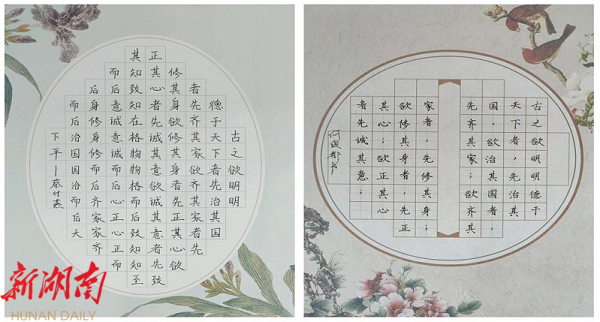 古之欲明明
德于天下者先治其国
者先齐其家欲齐其家者先
修其身欲修其身者先正其心欲
正其心者先诚其意欲诚其意者先致
其知致知在格物物格而后致知知至
而后意诚意诚而后心正心正而
后身修身修而后齐家家齐
而后治国国治而后天
下平——蔡付燕
古之欲明明德于
天下者，先治其
国，欲治其国者，
先齐其家；欲齐其
家者，先修其身；
欲修其身者，先正
其心；欲正其心
者先诚其意；
新湖南
HUNAN DAILY